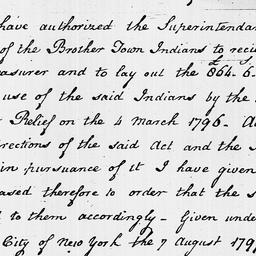 have authorized the Superintendan
of the Brother Town Indians to reci
easurer and to lay out the £864.6.
use of the said Indians by the
Relief on the 4 March 1796. A
rections of the said Act and the
in pursuance of it I have given
ased therefore to order that the s
to them accordingly – Given unde
City of New York the 7 August 179